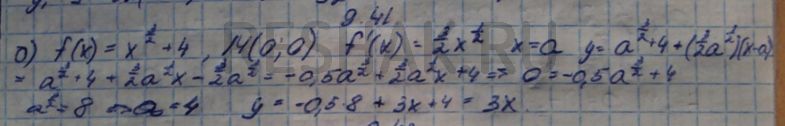 9.41
а) f(x) = x^{3/2} + 4, М(0;0) f'(x) = 3/2 x^{1/2} x = a y = a^{3/2} + 4 + (3/2 a^{1/2})(x-a)
= a^{3/2} + 4 + 3/2 a^{1/2} x - 3/2 a^{3/2} = -0,5a^{3/2} + 3/2 a^{1/2} x + 4 => 0 = -0,5a^{3/2} + 4
a^{3/2} = 8 => a = 4 y = -0,5·8 + 3x + 4 = 3x.